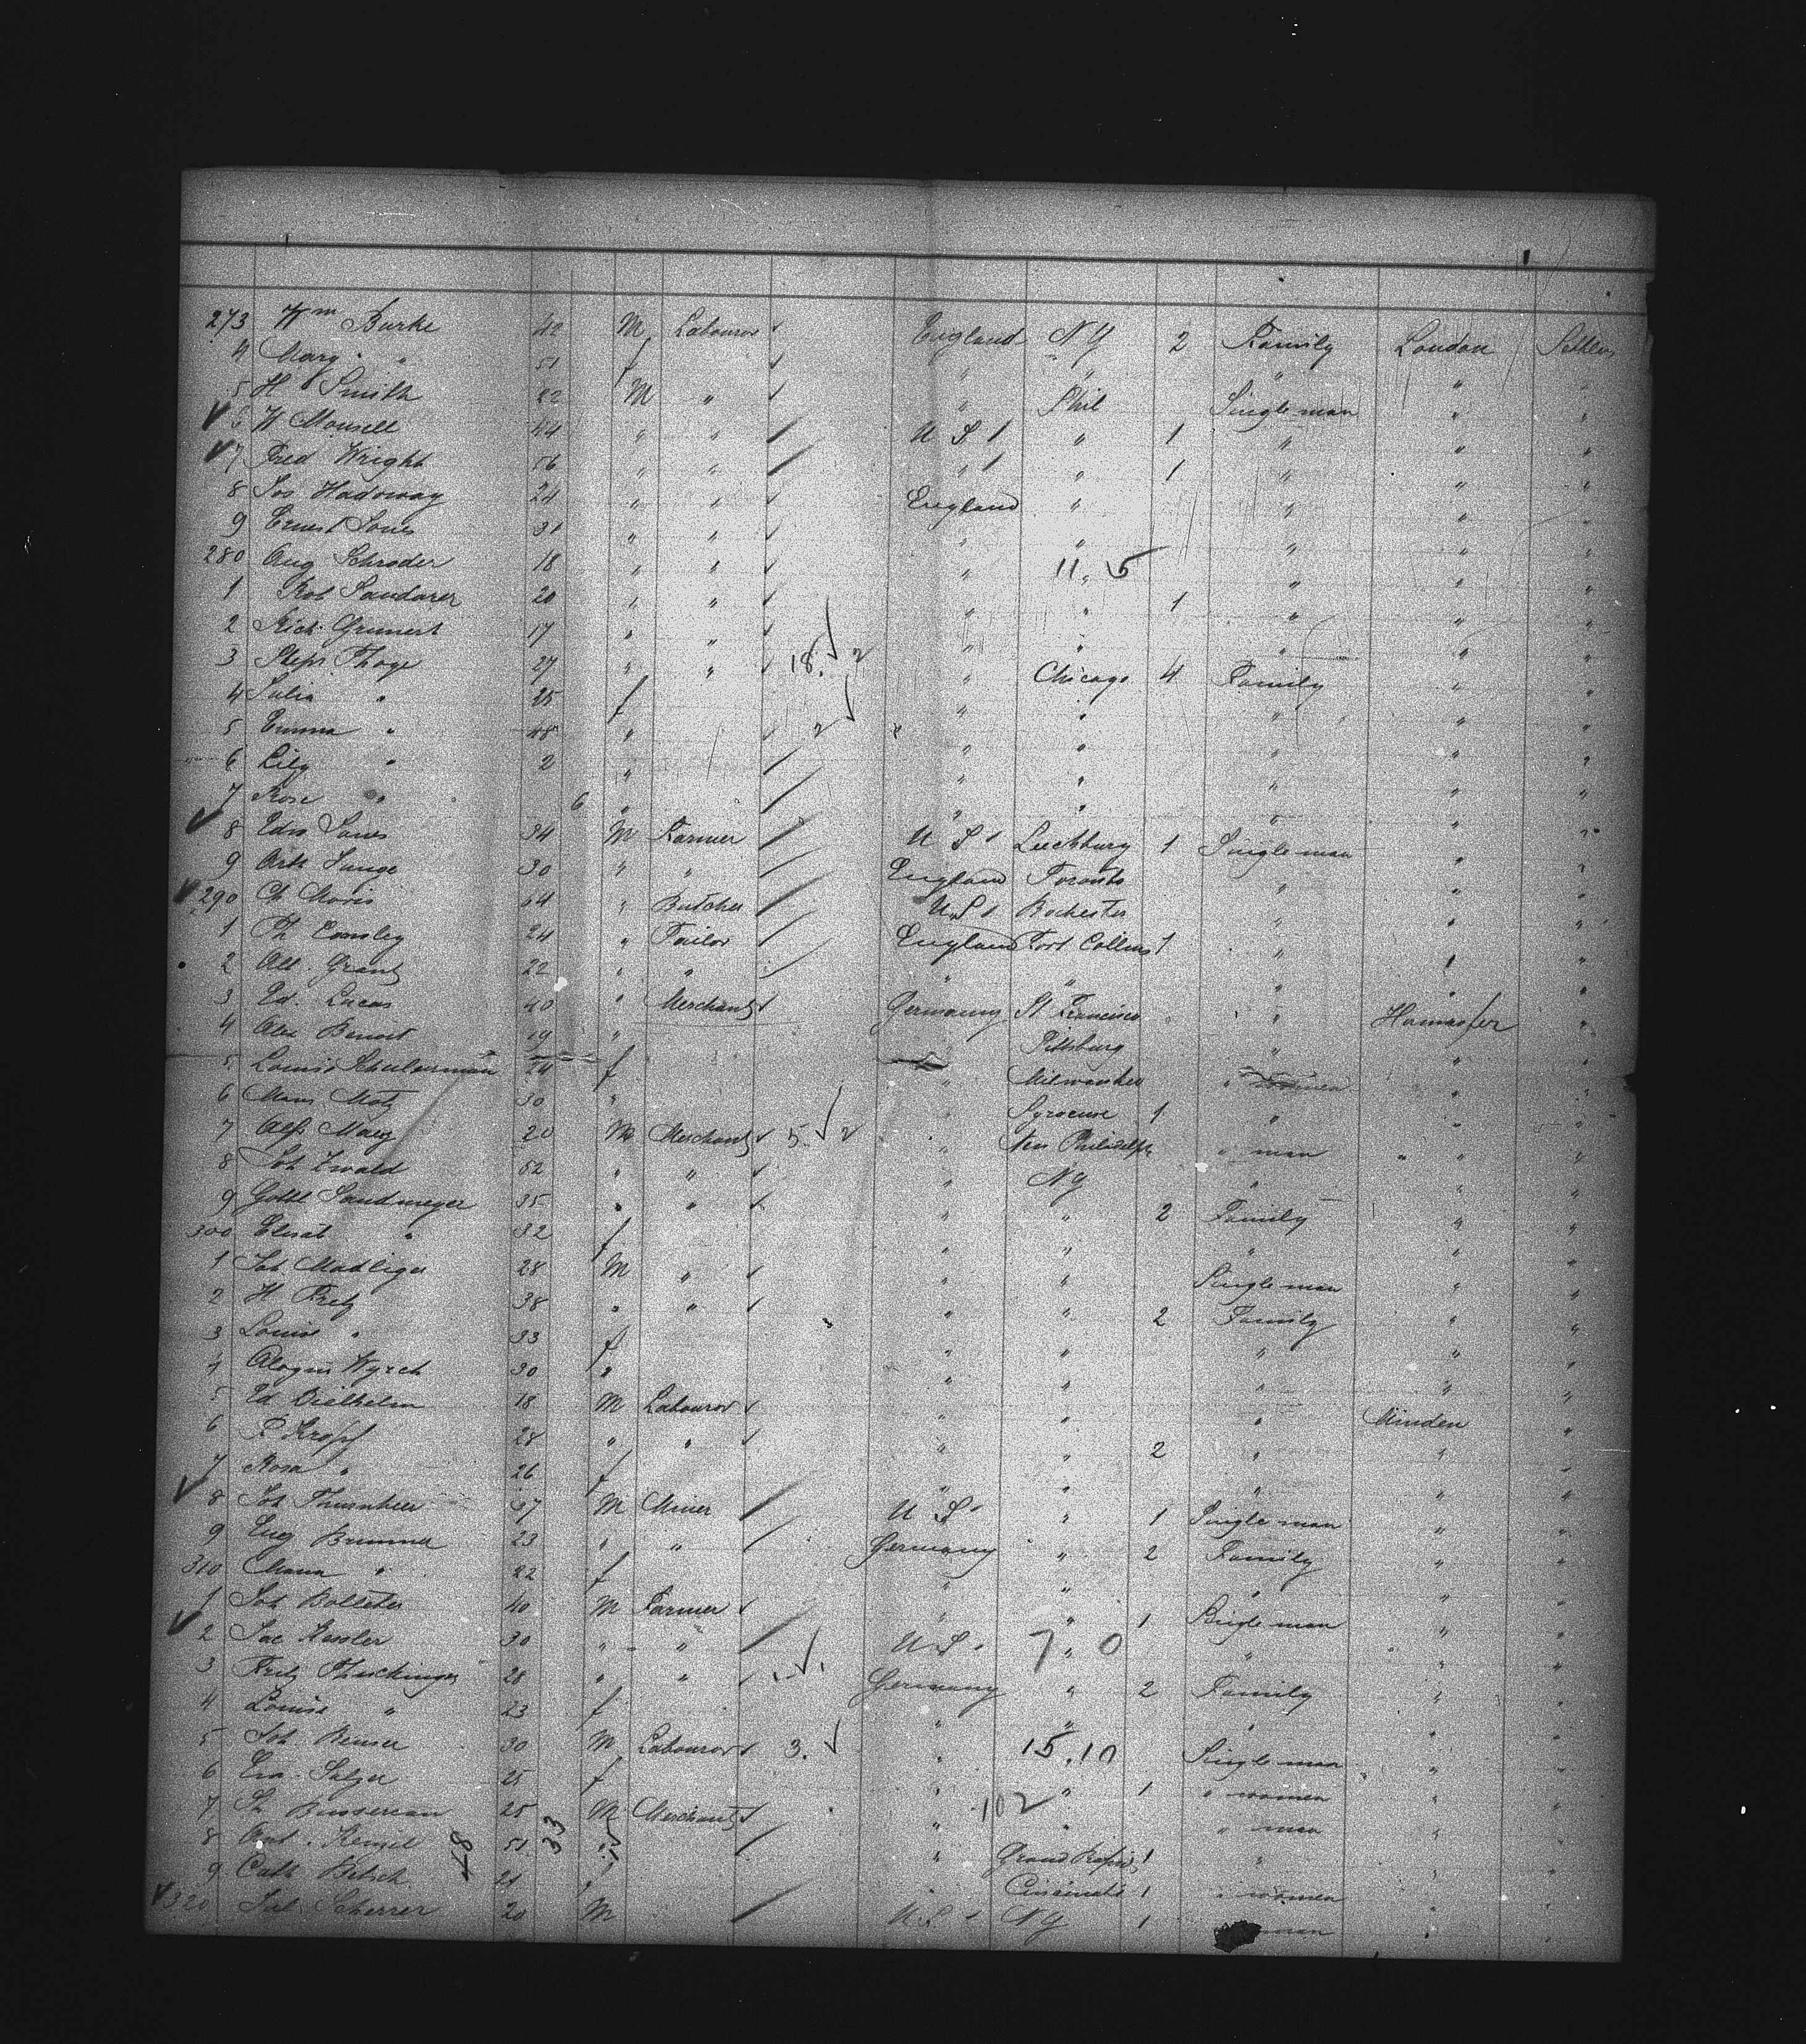 273 Wm Burke 42 M Labourer England NY 2 Family London Settlers
4 Mary " 51 f " " " " "
5 H Smith 22 M " " Phil Single man " "
6 W Mousell 44 " " U S 1 " 1 " " "
7 Fred Wright 56 " " " 1 " 1 " " "
8 Jos Hadoway 24 " " England " " " "
9 Ernest Jones 31 " " " " " " "
280 Aug Schroder 18 " " " 11. 5 " " "
1 Rob Sandarer 20 " " " " 1 " " "
2 Rich Grunert 17 " " " " " " "
3 Steph Thoge 27 " " 18. 2 " Chicago 4 Family " "
4 Julia " 25 f " " " " "
5 Emma " 48 " 2 " " " " "
6 Lily " 2 " " " " " "
7 Rose " 6 " " " " " "
8 Edw Jones 34 M Farmer U S 1 Leechburg 1 Single man " "
9 Arth Lange 30 " " England Toronto " " "
290 Ch Moris 64 " Butcher U.S 1 Rochester " " "
1 Th Emsley 24 " Tailor England Fort Collins 1 " " "
2 Alb. Grant 22 " " " " " " "
3 Ed. Lucas 40 " Merchant Germany St Francisco " Hannover "
4 Alex Benoit 19 " " Pittsburg " " "
5 Louis Schulerman 24 f " Milwaukee " women " "
6 Mar Motz 30 " " Syracuse 1 " " "
7 Alf. Maey 20 M Merchant 5 2 " New Philadelph " man " "
8 Joh Zwald 52 " " " NY " " "
9 Gottl Sandmeyer 35 " " " " 2 Family " "
300 Elisab " 32 f " " " " "
1 Joh Madliger 28 M " " " Single man " "
2 H Fretz 38 " " " " 2 Family " "
3 Louise " 33 f " " " " "
4 Wyrch 30 " " " " " "
5 Ed Diethelm 18 M Labourer " " " Minden "
6 P Kropf 28 " " " " 2 " " "
7 Rosa " 26 f " " " " "
8 Joh Thurnheer 37 M Miner U S 1 " 1 Single man " "
9 Eug Brunner 23 " " Germany " 2 Family " "
310 Maria " 22 f " " " " "
1 Joh Bolleter 40 M Farmer " " 1 Single man " "
2 Jac Kessler 30 " " U.S. 7 " 0 " " "
3 Fritz 28 " " Germany " 2 Family " "
4 Louise " 23 f " " " " "
5 Joh. Beuser 30 M Labourer 3. " 15.10 Single man " "
6 Eva Salzer 25 f " " 1 " women " "
7 25 M Merchant " 102 " " man " "
8 Kenzel 51 " " Grand Rapids 1 " " "
18 33
9 Cath 21 " " Cincinnati 1 " women " "
320 Jul Scherrer 20 M U.S 1 NY 1 man " "